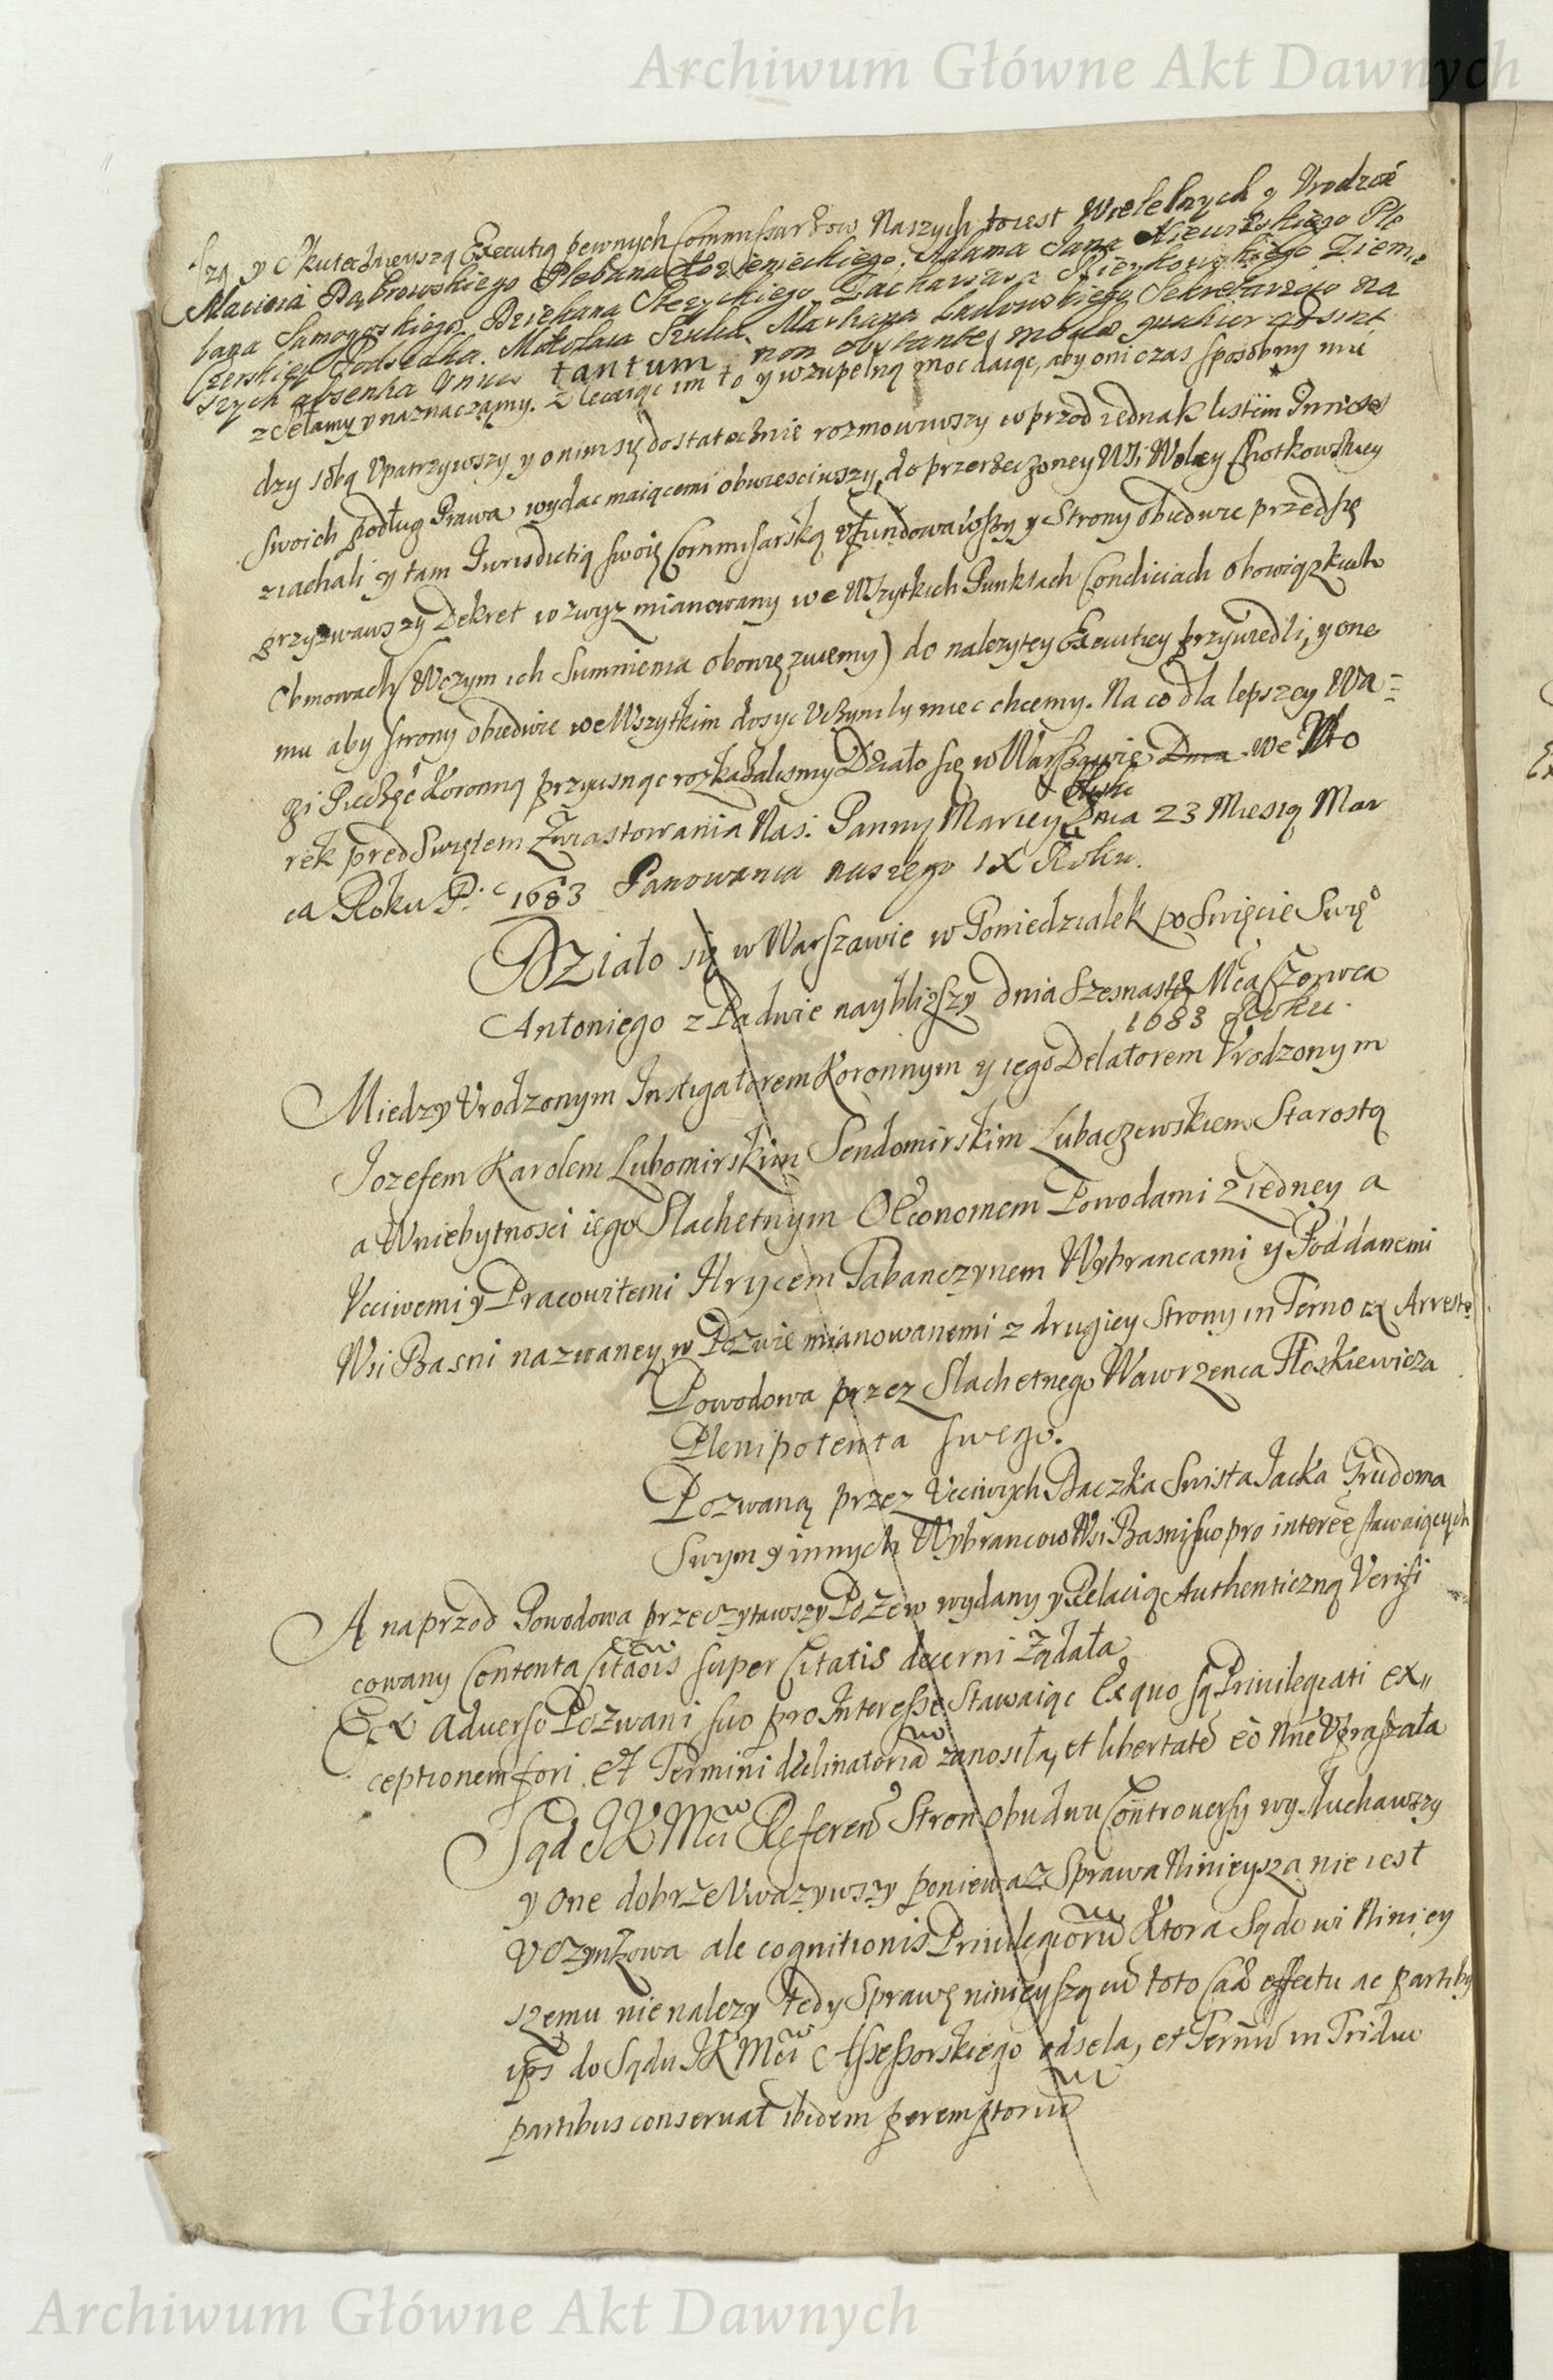 Archiwum Główne Akt Dawnych
szą y Skutecznieyszą Executią pewnych Commissarzow Naszych to iest Wielebnych y Vrodzo
Macieia Dąbrowskiego Plebana Adama Jana Ple
bana Samogoskiego, Dziekana Rzeczyckiego, Zachariasza Ziem
Czerskieg Podsędka. Mikołaia Szulca, Marhana Ludowskiego Sekretarzow Na
szych absentia Vnius tantum non obstante, modo quatuor adsint
zesłamy y naznaczamy. Zlecaiąc im to y wzupełną moc daiąc, aby oni czas sposobny mie
dzy sobą Vpatrzywszy y o nim się dostatecznie rozmowiwszy wprzod iednak listem Innotes
swoich podług Prawa wydac maiącemi obwiesciwszy, do przerzeczoney Wsi Woley Chotkowskiey
ziachali y tam Iurisdictią swoię Commisarską vfundowawszy y Strony obiedwie przed się
przyzwawszy Dekret wzwyż mianowany we Wszytkich Punktach Condiciach obowiązkach
Obmowach (Wczym ich Sumnienia obowięzuiemy) do nalezytey Executiey przywiedli, y one
mu aby strony obiedwie we Wszytkim dosyc Vczyniły miec chcemy. Na co dla lepszey Wa=
gi Pieczęc Koronną przycisnąc rozkazalismy Działo się w Warszawie Dnia we Wto
rek przed Swiętem Zwiastowania Nas: Panny Mariey Dnia 23 Miesią Mar
ca Roku P. 1683 Panowania naszego IX Roku.
Działo się w Warszawie w Poniedziałek po Swięcie Swię
Antoniego z Padwie naybliższy dnia Szesnast Mca Czerwca
1683 Roku.
Miedzy Vrodzonym Instigatorem Koronnym y iego Delatorem Vrodzonym
Iozefem Karolem Lubomirskim Sendomirskim Lubaczewskiem Starostą
a Wniebytnosci iego Slachetnym Oeconomem Powodami z iedney a
Vcciwemi y Pracowitemi Hrycem Tabanczynem Wybrancami y Poddanemi
Wsi Basni nazwaney w Pozwie mianowanemi z drugiey Strony in Termo ex Arresto
Powodowa przez Slachetnego Wawrzenca Płoskiewicza
Plenipotenta swego.
Pozwaną przez Vcciwych Daczka Swista Iacka Grudoma
Swym y innych Wybrancow Wsi Basni suo pro interee stawaiących
A naprzod Powodowa przeczytawszy Pozew wydany y Relacią Authenticzną Verifi
cowany Contenta Citaōis super Citatis decerni żądała
Ex adverso Pozwani suo pro Interesse Stawaiąc Ex quo są Privilegiati ex
ceptionem fori et Termini declinatoriā zanosiła, et libertatē eo nne Vpraszała
Sąd IKMci Referen Stron obudwu Controuersy wysłuchawszy
y one dobrze Vwazywszy poniewaz Sprawa Ninieysza nie iest
Vczynkowa ale cognitionis Privilegiorū Ktora Sądowi Niniey
szemu nie nalezy tedy Sprawę ninieyszą cū toto effectu ac partibus
ips do Sądu IKMci Assessorskiego odsela, et Termū in Triduo
partibus conservat ibidem peremptoriū
Archiwum Główne Akt Dawnych